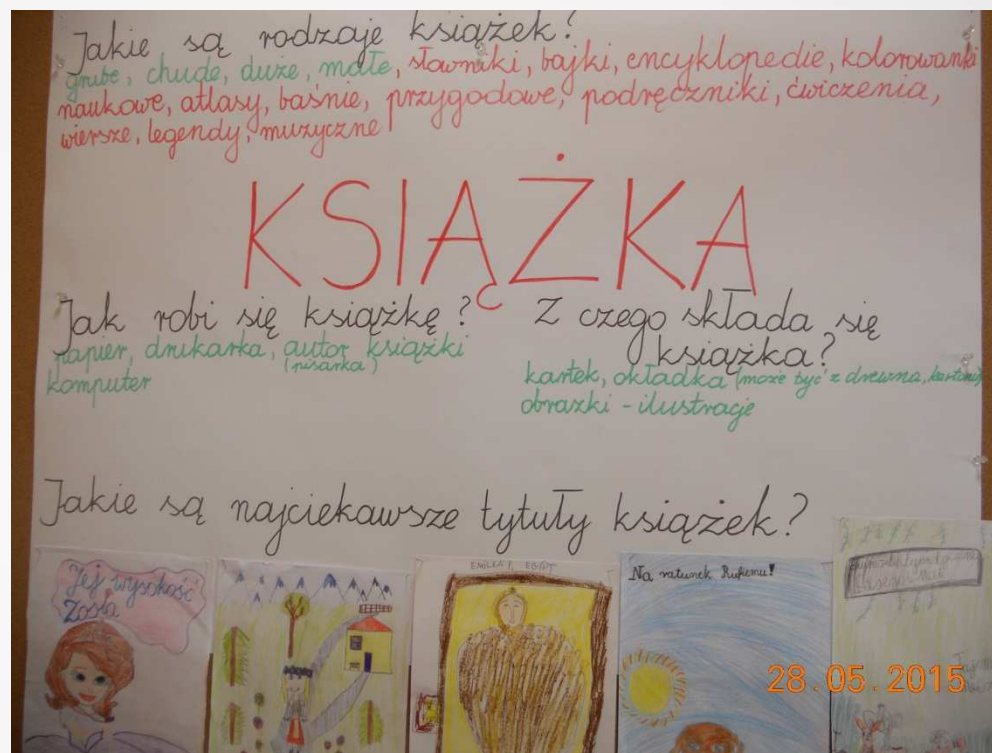 Jakie są rodzaje książek?
grube, chude, duże, małe, słowniki, bajki, encyklopedie, kolorowanki
naukowe, atlasy, baśnie, przygodowe, podręczniki, ćwiczenia,
wiersze, legendy, muzyczne
KSIĄŻKA
Jak robi się książkę?
papier, drukarka, autor książki
(pisarka)
komputer
Z czego składa się
książka?
kartek, okładka (może być z drewna, kartonu)
obrazki - ilustracje
Jakie są najciekawsze tytuły książek?
Jej wysokość
Zosia
EGIPT
Na ratunek Rufiemu!
28.05.2015